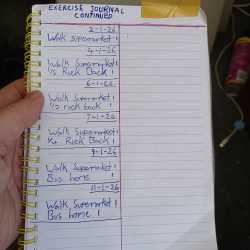 EXERCISE JOURNAL
CONTINUED
2-1-26
Walk supermarket!
4-1-26
Walk Supermarket!
's Rick Back!
6-1-26
Walk Supermarket!
's rick back!
7-1-26
Walk Supermarket!
Rick Back!
9-1-26
Walk Supermarket!
Bus home!
11-1-26
Walk Supermarket!
Bus home!